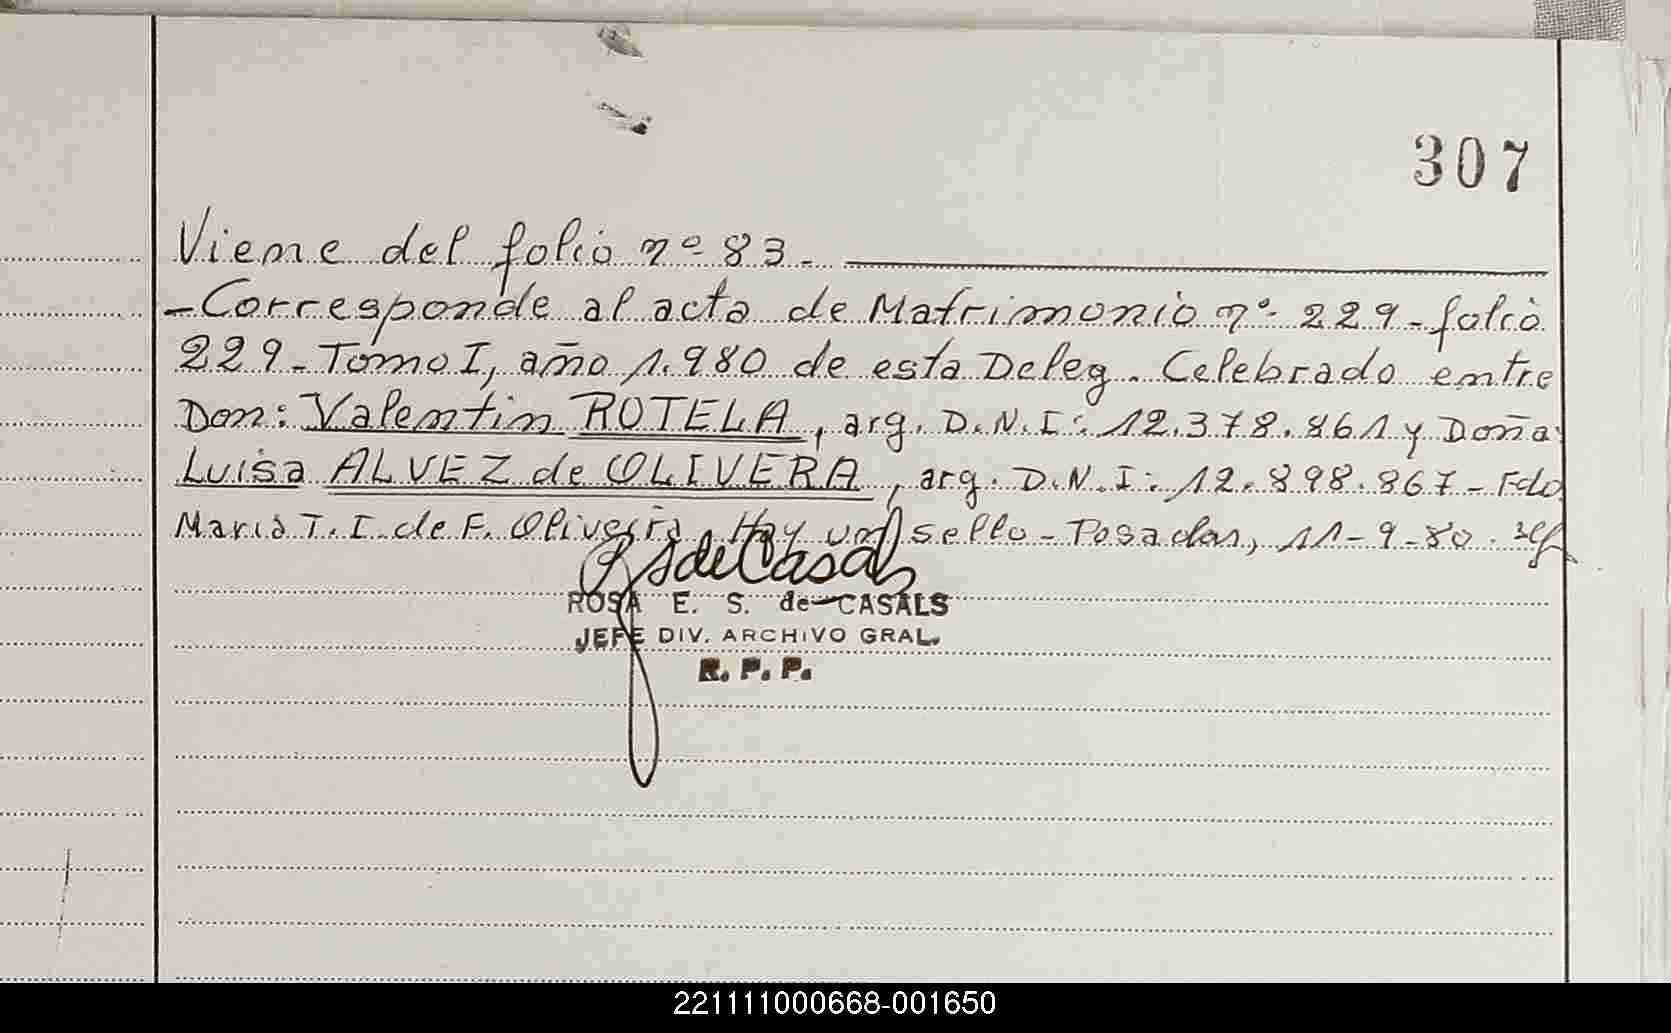 307
Viene del folio nº 83.
- Corresponde al acta de Matrimonio nº 229 - folio
229 - Tomo I, año 1.980 de esta Deleg. Celebrado entre
Don: Valentin ROTELA, arg. D.N.I: 12.378.861 y Doña:
Luisa ALVEZ de OLIVERA, arg. D.N.I: 12.898.867 - Fdo
Maria T. I. de F. Oliveira. Hay un sello - Posadas, 11-9-80.
RSdeCasals
ROSA E. S. de CASALS
JEFE DIV. ARCHIVO GRAL.
R. P. P.
221111000668-001650